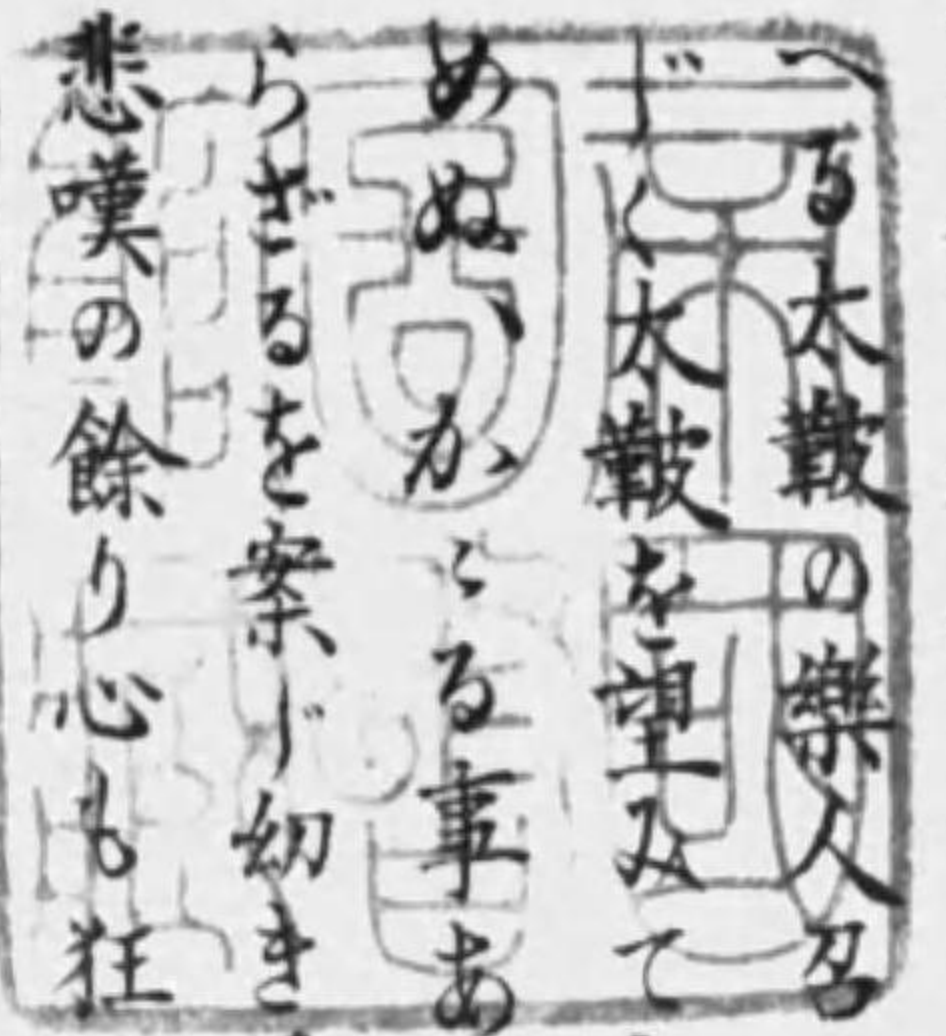 へる太鼓の樂人名
じく太鼓を望みて
めぬ、かゝる事あ
らざるを案じ幼き
悲嘆の餘り心も狂